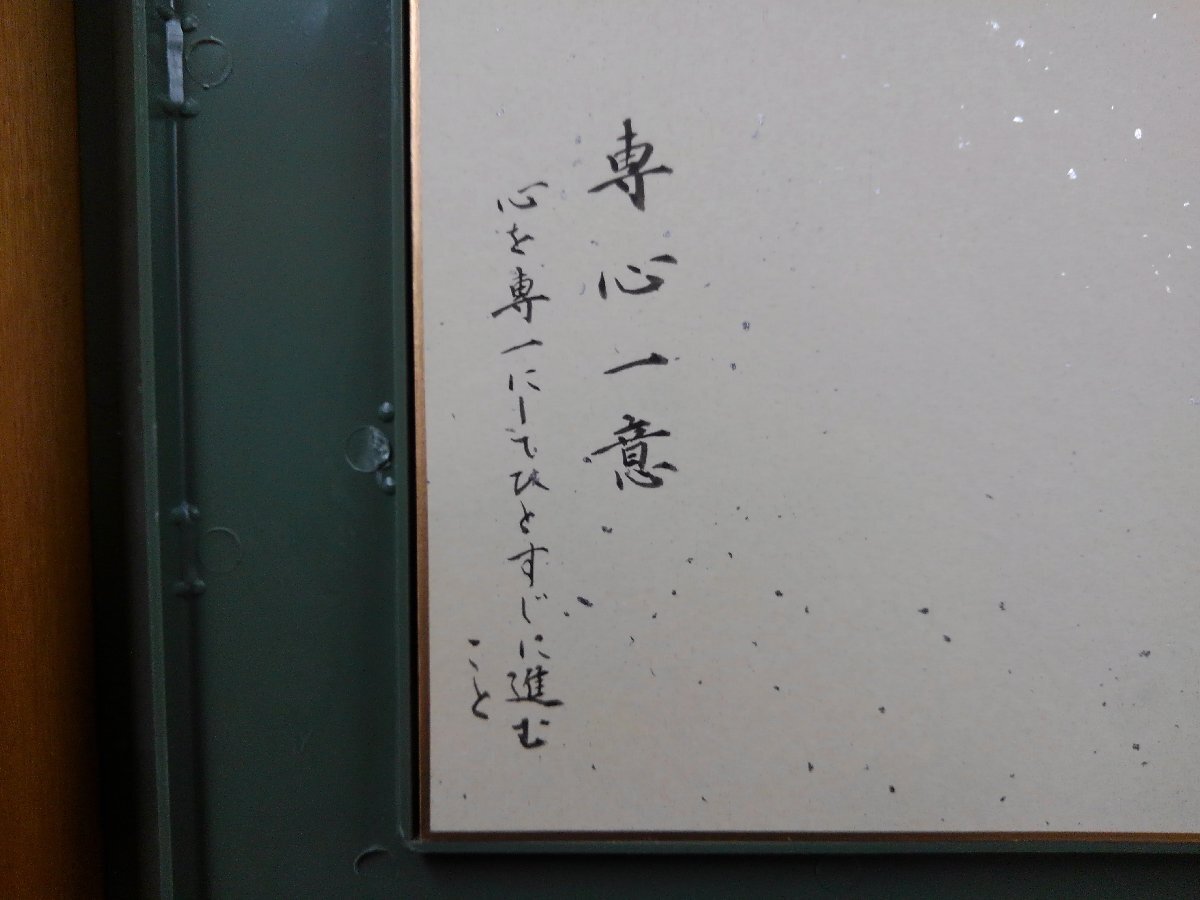 専心一意
心を専一にしてひとすじに進む
こと